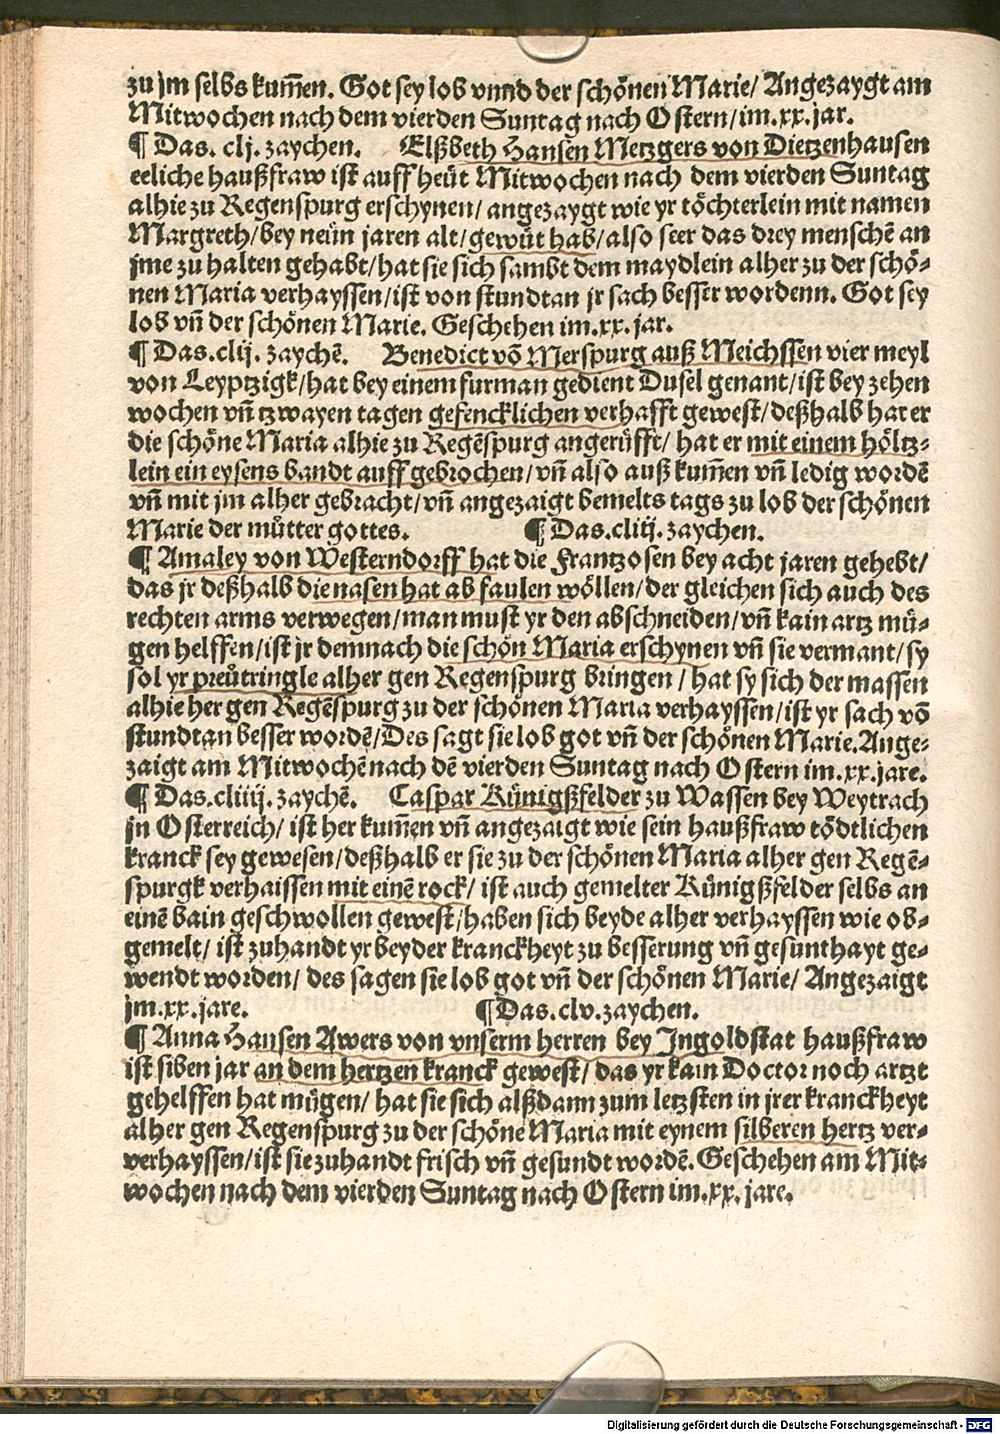 zu jm selbs kum̃en. Got sey lob vnnd der schönen Marie/ Angezaygt am
Mitwochen nach dem vierden Suntag nach Ostern/im.xx.jar.
¶ Das. clj. zaychen. Elßbeth Hansen Metzgers von Dietzenhausen
eeliche haußfraw ist auff heüt Mitwochen nach dem vierden Suntag
alhie zu Regenspurg erschynen/ angezaygt wie yr töchterlein mit namen
Margreth/bey neün jaren alt/gewüt hab/also seer das drey menschē an
jme zu halten gehabt/hat sie sich sambt dem maydlein alher zu der schö⸗
nen Maria verhayssen/ist von stundtan jr sach besser wordenn. Got sey
lob vñ der schönen Marie. Geschehen im.xx.jar.
¶ Das.clij. zaychē. Benedict vō Merspurg auß Meichssen vier meyl
von Leyptzigk/hat bey einem furman gedient Dusel genant/ist bey zehen
wochen vñ tzwayen tagen gefencklichen verhafft gewest/deßhalb hat er
die schöne Maria alhie zu Regēspurg angerüfft/ hat er mit einem höltz⸗
lein ein eysens bandt auff gebrochen/vñ also auß kum̃en vñ ledig wordē
vñ mit jm alher gebracht/vñ angezaigt bemelts tags zu lob der schönen
Marie der mütter gottes. ¶ Das.cliij. zaychen.
¶ Amaley von Westerndorff hat die Frantzosen bey acht jaren gehebt/
das jr deßhalb die nasen hat ab faulen wöllen/der gleichen sich auch des
rechten arms verwegen/man must yr den abschneiden/vñ kain artz mü⸗
gen helffen/ist jr demnach die schön Maria erschynen vñ sie vermant/sy
sol yr preütringle alher gen Regenspurg bringen/hat sy sich der massen
alhie her gen Regēspurg zu der schönen Maria verhayssen/ist yr sach vō
stundtan besser wordē/Des sagt sie lob got vñ der schönen Marie.Ange⸗
zaigt am Mitwochē nach dē vierden Suntag nach Ostern im.xx.jare.
¶ Das.cliiij. zaychē. Caspar Künigßfelder zu Wassen bey Weytrach
jn Osterreich/ ist her kum̃en vñ angezaigt wie sein haußfraw tödtlichen
kranck sey gewesen/deßhalb er sie zu der schönen Maria alher gen Regē⸗
spurgk verhaissen mit einē rock/ ist auch gemelter Künigßfelder selbs an
einē bain geschwollen gewest/haben sich beyde alher verhayssen wie ob⸗
gemelt/ ist zuhandt yr beyder kranckheyt zu besserung vñ gesunthayt ge⸗
wendt worden/ des sagen sie lob got vñ der schönen Marie/ Angezaigt
jm.xx.jare. ¶Das.clv.zaychen.
¶ Anna Hansen Awers von vnserm herren bey Jngoldstat haußfraw
ist siben jar an dem hertzen kranck gewest/ das yr kain Doctor noch artzt
gehelffen hat mügen/ hat sie sich alßdann zum letzsten in jrer kranckheyt
alher gen Regenspurg zu der schöne Maria mit eynem silberen hertz ver⸗
verhayssen/ist sie zuhandt frisch vñ gesundt wordē. Geschehen am Mit⸗
wochen nach dem vierden Suntag nach Ostern im.xx.jare.
Digitalisierung gefördert durch die Deutsche Forschungsgemeinschaft - DFG